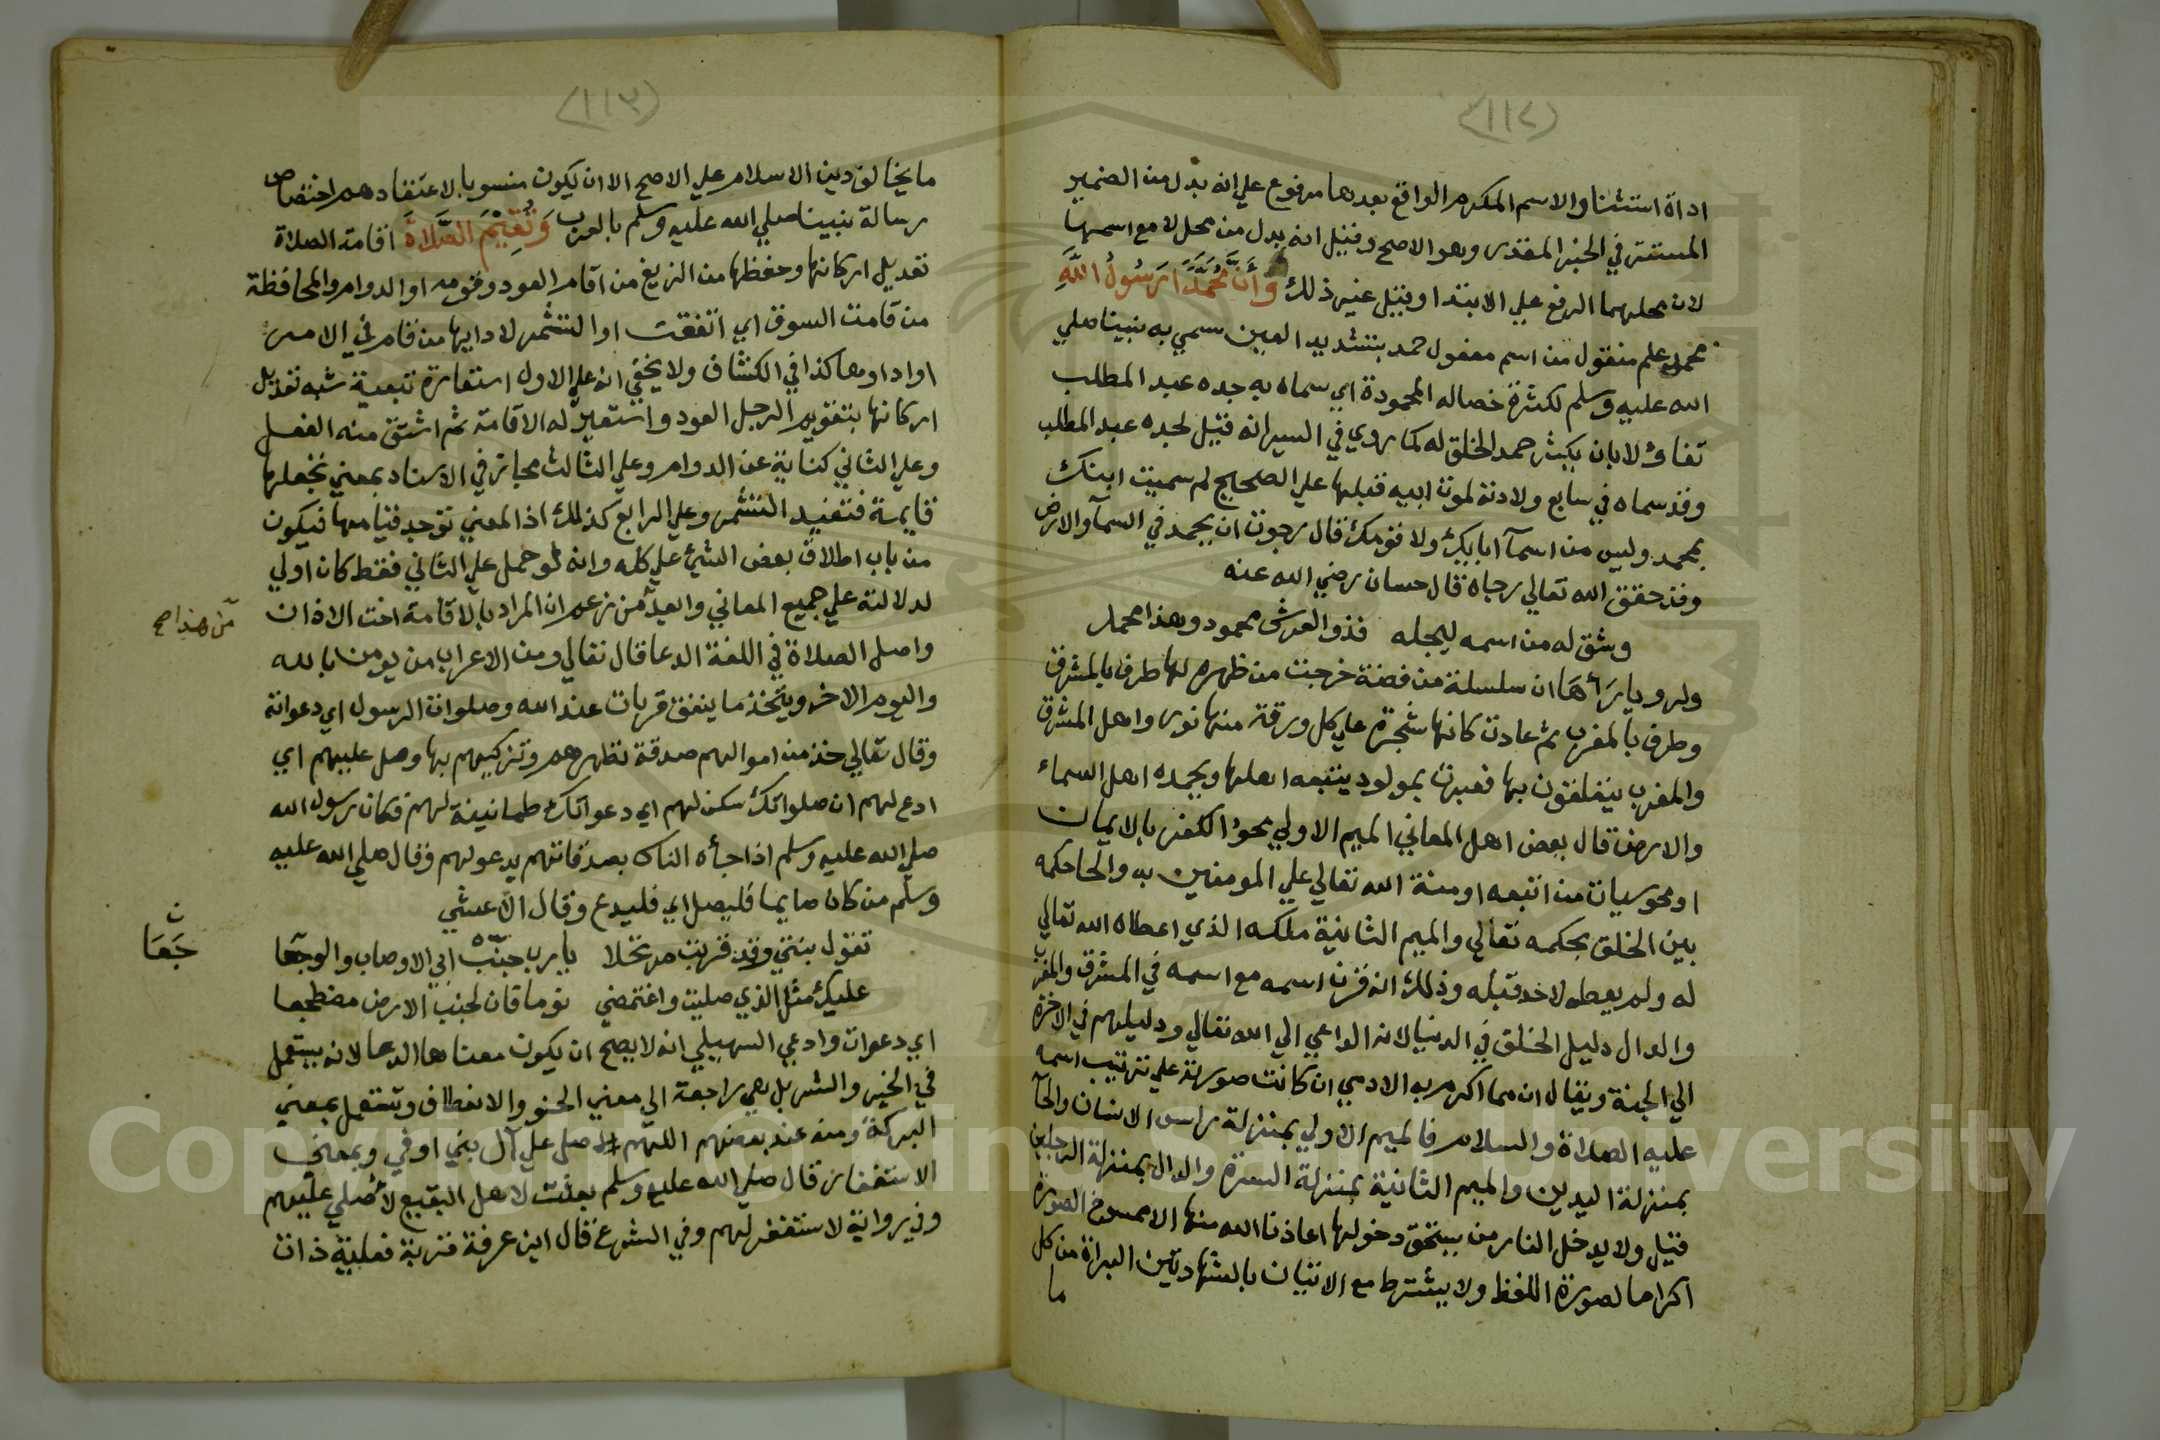 (١١٢)
اداة استثنا والاسم المكرم الواقع بعدها مرفوع علي انه بدل من الضمير
المستتر في الخبر المقدر وهو الاصح وقيل انه بدل من محل لا مع اسمها
لان محلهما الرفع علي الابتدا وقيل غير ذلك وَأَنَّ مُحَمَّدًا رَسُولُ اللَّهِ
محمد علم منقول من اسم مفعول حمد بتشديد العين سمي به نبينا صلي
الله عليه وسلم لكثرة خصاله المحمودة اي سماه به جده عبد المطلب
تفاؤلا بان يكثر حمد الخلق له كما روي في السير انه قيل لجده عبد المطلب
وقد سماه في سابع ولادته لموت ابيه قبلها علي الصحيح لم سميت ابنك
بمحمد وليس من اسمآ ابايك ولا قومك قال رجوت ان يحمد في السمآ والارض
وقد حقق الله تعالي رجاه قال حسان رضي الله عنه
وشق له من اسمه ليجله فذو العرش محمود وهذا محمد
ولرويا رَأهَا ان سلسلة من فضة خرجت من ظهره لها طرف بالمشرق
وطرف بالمغرب ثم عادت كانها شجرة علي كل ورقة منها نور واهل المشرق
والمغرب يتعلقون بها فعبرت بمولود يتبعه اهلها ويحمده اهل السماء
والارض قال بعض اهل المعاني الميم الاولي محوا الكفر بالايمان
او محو سيات من اتبعه او منة الله تعالي علي المومنين به والحا حكمه
بين الخلق بحكمه تعالي والميم الثانية ملكه الذي اعطاه الله تعالي
له ولم يعطه لاحد قبله وذلك انه قرن اسمه مع اسمه في المشرق والمغرب
والدال دليل الخلق في الدنيا لانه الداعي الي الله تعالي ودليلهم في الاخرة
الي الجنة ويقال ان مما اكرم به الادمي ان كانت صورته علي ترتيب اسمه
عليه الصلاة والسلام فالميم الاولي بمنزلة راس الانسان والحآ
بمنزلة اليدين والميم الثانية بمنزلة السرة والدال بمنزلة الرجلين
قيل ولا يدخل النار من يستحق دخولها اعاذنا الله منها الا ممسوخ الصورة
اكراما لصورة اللفظ ولا يشترط مع الاتيان بالشهادتين البراة من كل
ما
(١١٣)
ما يخالف دين الاسلام علي الاصح الا ان يكون منسوبا لاعتقادهم اختصاص
رسالة نبينا صلي الله عليه وسلم بالعرب وَتُقِيْمَ الصَّلاةَ اقامة الصلاة
تعديل اركانها وحفظها من الزيغ من اقام العود وقومه او الدوام والمحافظة
من قامت السوق اي انفقت او التشمر لادايها من قام في الامر
او اداوها كذا في الكشاف ولا يخفي انه علي الاول استعارة تبعية شبه تعديل
اركانها بتقويم الرجل العود واستعير له الاقامة ثم اشتق منه الفعل
وعلي الثاني كناية عن الدوام وعلي الثالث مجاز في الاسناد بمعني نجعلها
قايمة فتفيد التشمر وعلي الرابع كذلك اذ المعني توجد قيامها فيكون
من باب اطلاق بعض الشئ علي كله وانه لو حمل علي الثاني فقط كان اولي
لدلالته علي جميع المعاني وابعد من زعم ان المراد بالاقامة اخت الاذان
من هذا صح
واصل الصلاة في اللغة الدعا قال تعالي ومن الاعراب من يومن بالله
واليوم الاخر ويتخذ ما ينفق قربات عند الله وصلوات الرسول اي دعواته
وقال تعالي خذ من اموالهم صدقة تطهرهم وتزكيهم بها وصل عليهم اي
ادع لهم ان صلواتك سكن لهم اي دعواتك طمانينة لهم فكان رسول الله
صلي الله عليه وسلم اذا جأه الناس بصدقاتهم يدعو لهم وقال صلي الله عليه
وسلم من كان صايما فليصل اي فليدع وقال الاعشي
تقول بنتي وقد قربت مرتحلا يا رب جنب ابي الاوصاب والوجعا
جَعَا
عليك مثل الذي صليت واغتمضي نوما فان لجنب الارض مضطجعا
اي دعوات وادعي السهيلي انه لا يصح ان يكون معناها الدعا لانه يستعمل
في الخير والشر بل هي راجعة الي معني الحنو والانعطاف وتستعمل بمعني
البركة ومنه عند بعضهم اللهم صل علي آل بني اوفي وبمعني
الاستغفار قال صلي الله عليه وسلم بعثت لاهل البقيع لأصلي عليهم
وفي رواية لاستغفر لهم وفي الشرع قال ابن عرفة قربة فعلية ذات
Copyright © King Saud University